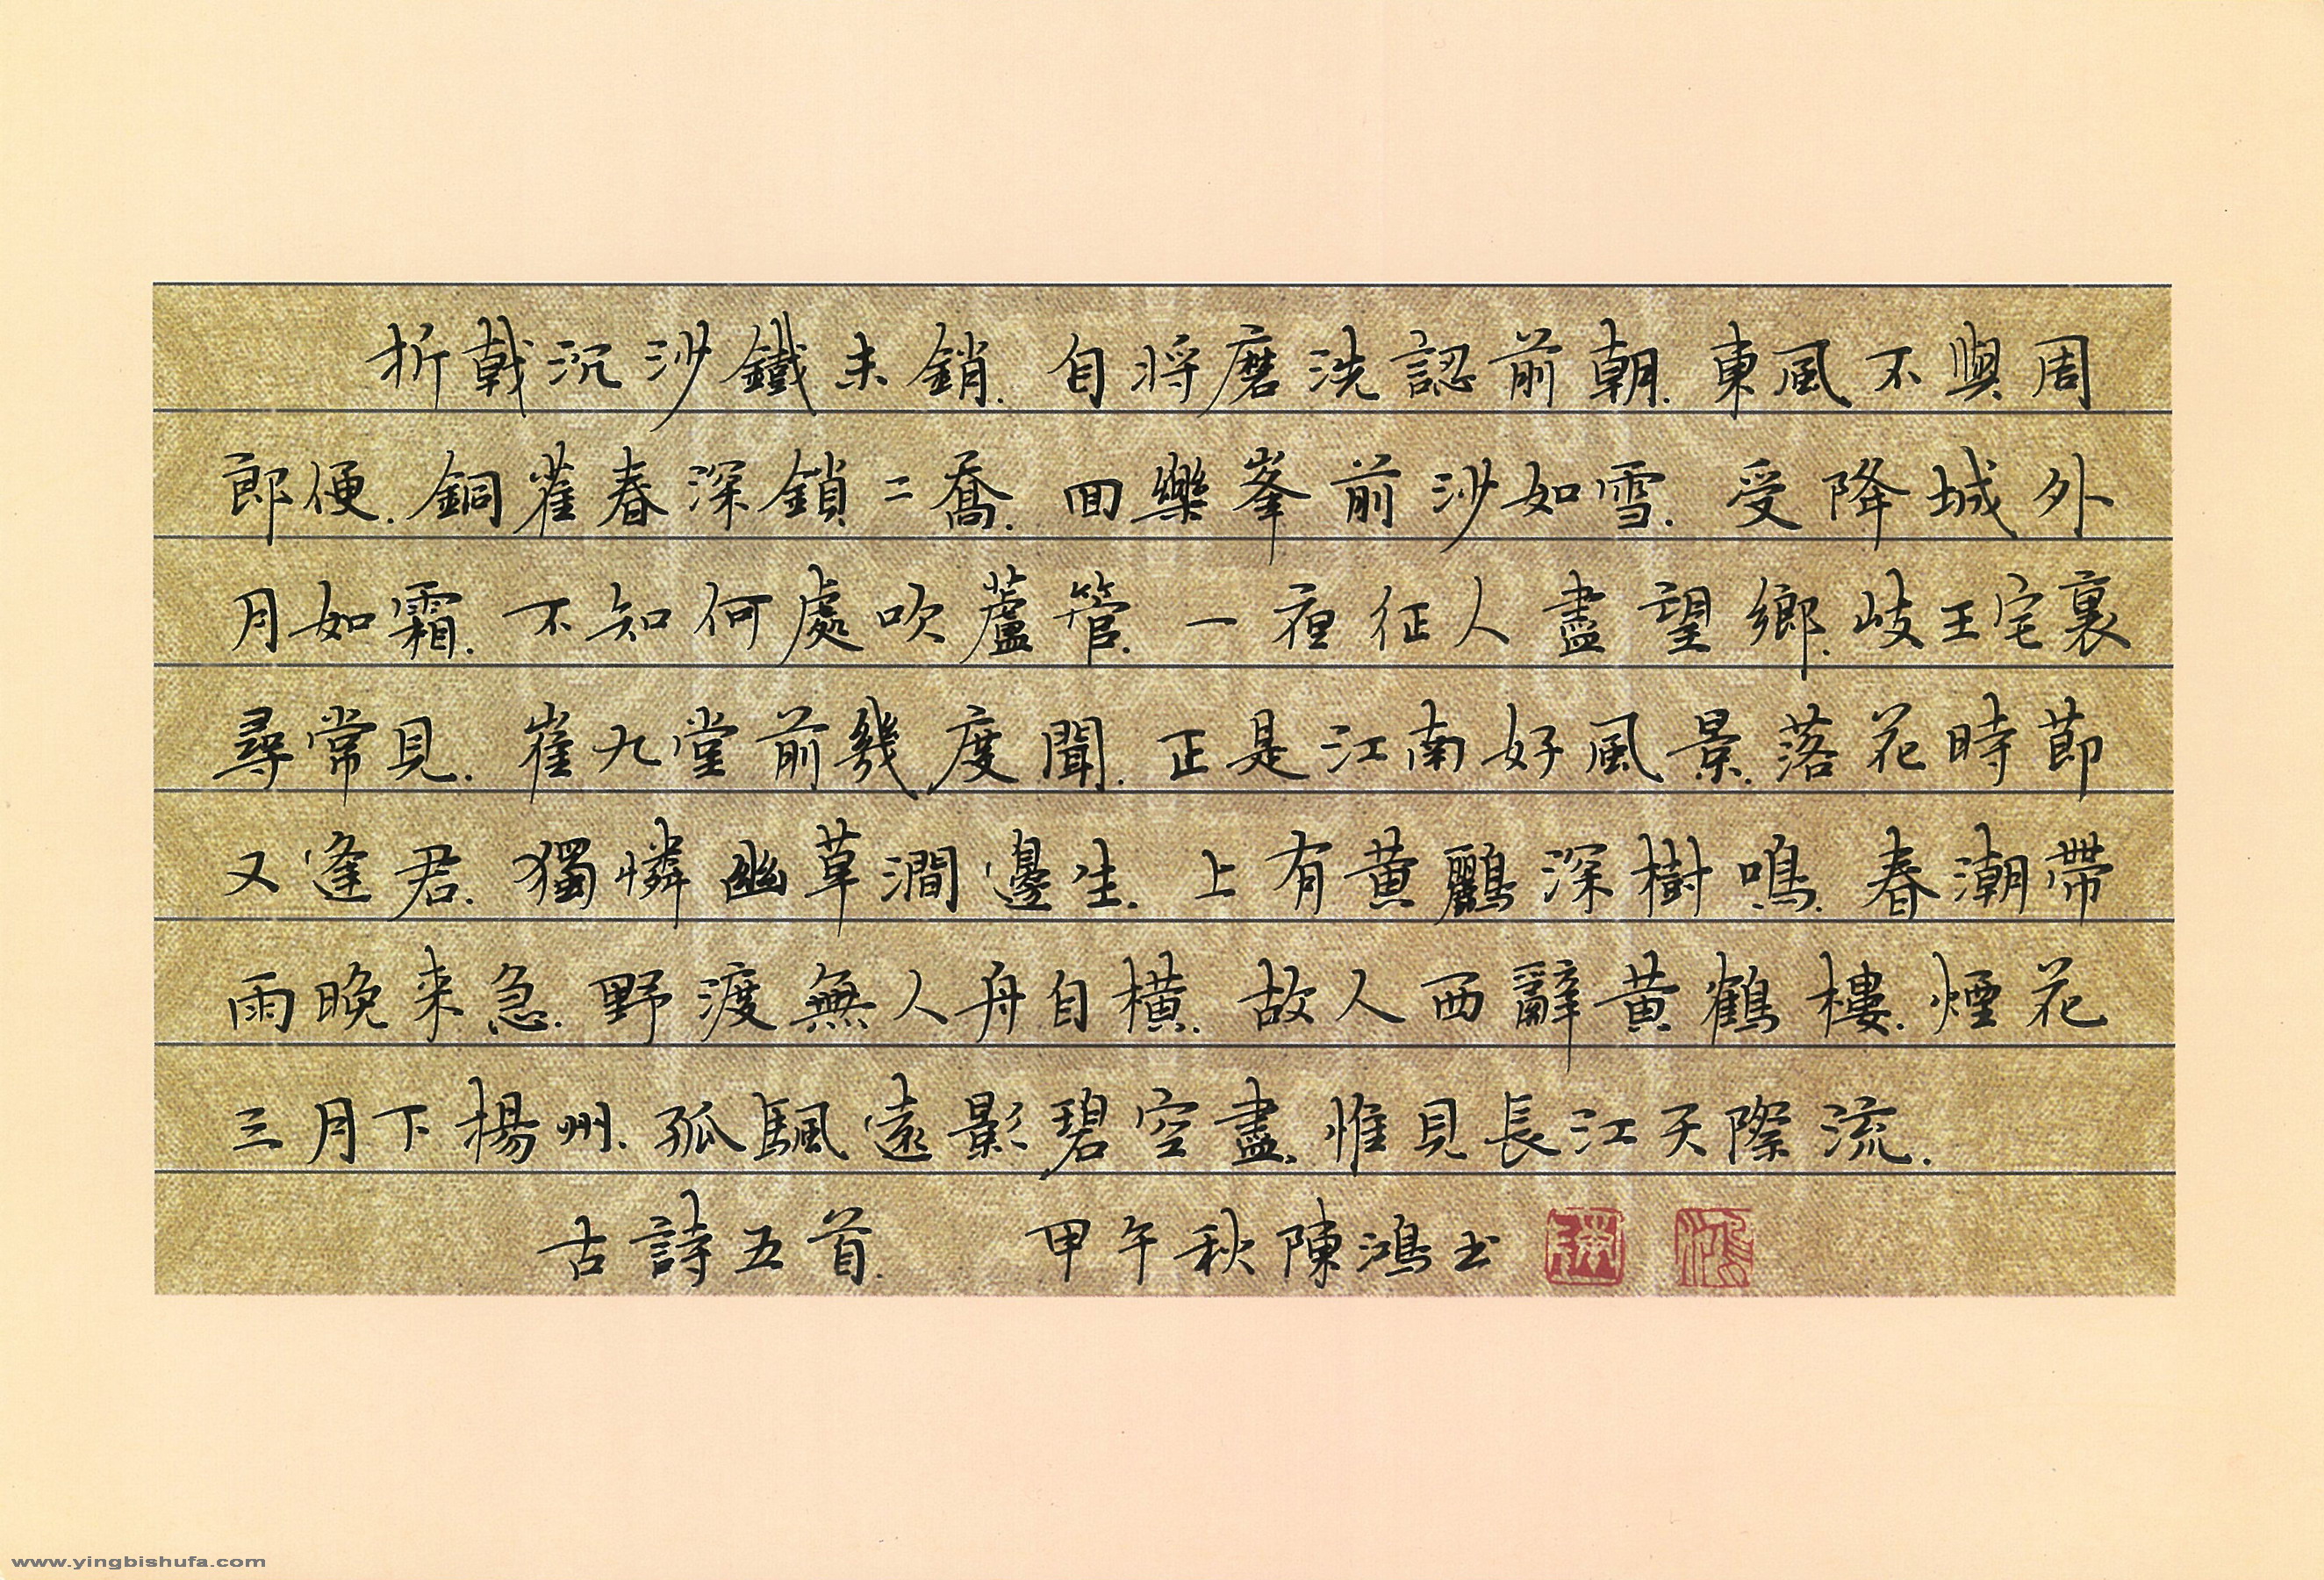 折戟沉沙鐵未銷.自將磨洗認前朝.東風不與周
郎便.銅雀春深鎖二喬.回樂峯前沙如雪.受降城外
月如霜.不知何處吹蘆管.一夜征人盡望鄉.岐王宅裏
尋常見.崔九堂前幾度聞.正是江南好風景.落花時節
又逢君.獨憐幽草澗邊生.上有黄鸝深樹鳴.春潮帶
雨晚来急.野渡無人舟自橫.故人西辭黄鶴樓.煙花
三月下楊州.孤颿遠影碧空盡.惟見長江天際流.
古詩五首.甲午秋陳鴻书
www.yingbishufa.com